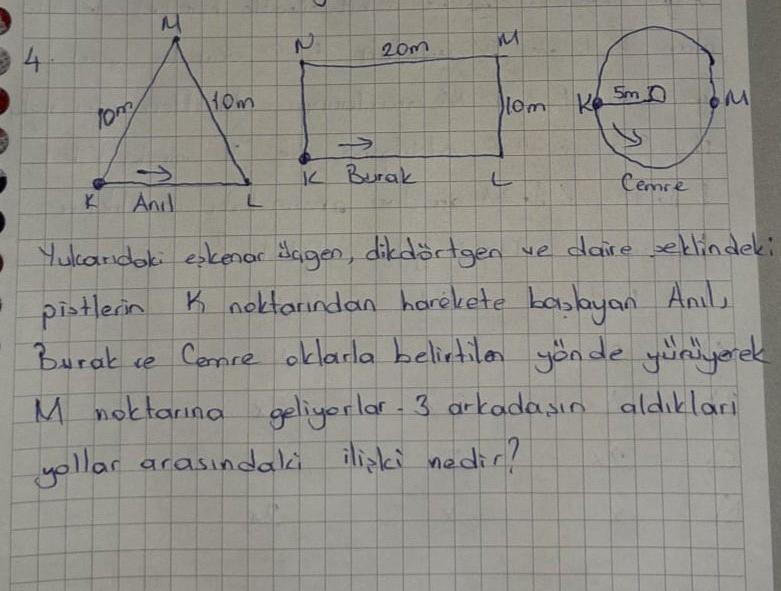 4.
M
10m
10m
K
Anıl
L
N
20m
M
10m
K
Burak
L
K
5m
O
M
Cemre
Yukarıdaki eşkenar üçgen, dikdörtgen ve daire şeklindeki
pistlerin K noktasından harekete başlayan Anıl,
Burak ve Cemre oklarla belirtilen yönde yürüyerek
M noktasına geliyorlar. 3 arkadaşın aldıkları
yollar arasındaki ilişki nedir?